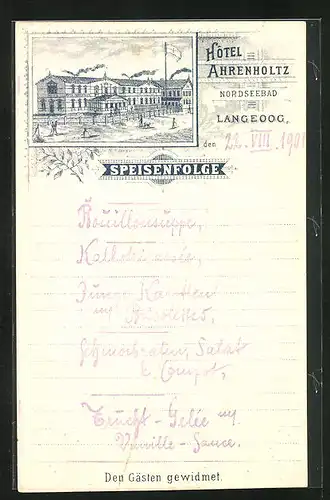 HÔTEL
AHRENHOLTZ
NORDSEEBAD
LANGEOOG,
den 22. VIII. 1901
SPEISENFOLGE
Bouillonsuppe,
Junge Karotten
m/
Schmorbraten, Salat
& Compot,
Frucht-Gelée m/
Vanille-Sauce.
Den Gästen gewidmet.